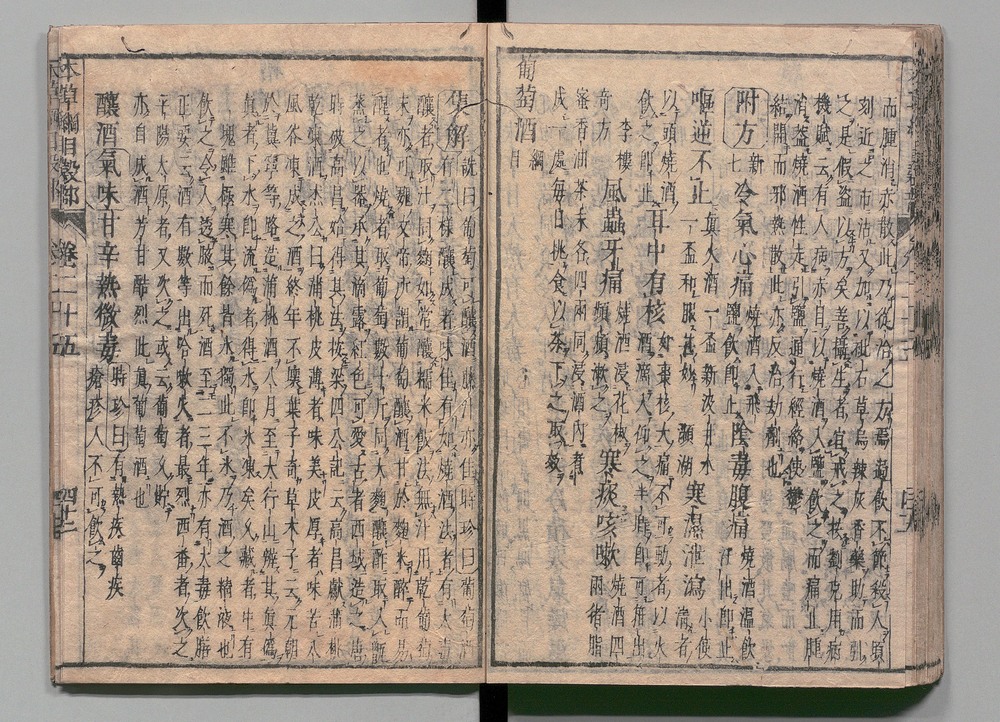 而腫消亦散此乃從治之方焉過飲不節殺人頃
刻近之市沽又加以砒石草烏辣灰香藥助而引
之是假盜以方矣善攝生者宜戒之按劉克用病
機賦云有人病赤目以燒酒入鹽飲之而痛止腫
消蓋燒酒性走引鹽通行經絡使鬱
結開而邪熱散此亦反治劫劑也
附方 新七 冷氣心痛 燒酒入飛鹽飲即止 陰毒腹痛 燒酒溫飲汗出即止
嘔逆不止 真火酒一盃新汲井水一盃和服甚妙 瀕湖 寒濕泄瀉 小便清者
以頭燒酒飲之即止 耳中有核 如棗核大痛不可動者以火酒滴入仰之半時即可箝出
李樓奇方 風蟲牙痛 燒酒浸花椒頻頻漱之 寒痰咳嗽 燒酒四兩猪脂
蜜香油茶末各四兩同浸酒內煮
成一處每日挑食以茶下之取效
葡萄酒 綱目
集解 詵曰葡萄可釀酒藤汁亦佳時珍曰葡萄酒
有二樣釀成者味佳有如燒酒法者有大毒
釀者取汁同麴如常釀糯米飯法無汁用乾葡萄
末亦可魏文帝所謂葡萄釀酒甘於麴米醉而易
醒者也燒者取葡萄數十斤同大麴釀酢取入甑
蒸之以器承其滴露紅色可愛古者西域造之唐
時破高昌始得其法按梁四公記云高昌獻蒲桃
乾凍酒杰公曰蒲桃皮薄者味美皮厚者味苦八
風谷凍成之酒終年不壞葉子奇草木子云元朝
於冀寧等路造蒲桃酒八月至太行山辨其真偽
真者下水即流偽者得水即冰凍矣久藏者中有
一塊雖極寒其餘皆冰獨此不冰乃酒之精液也
飲之令人透腋而死酒至二三年亦有大毒飲膳
正要云酒有數等出哈喇火者最烈西番者次之
平陽太原者又次之或云葡萄久貯
亦自成酒芳甘酷烈此真葡萄酒也
釀酒氣味甘辛熱微毒 時珍曰有熱疾齒疾瘡疹人不可飲之
本草綱目穀部 卷二十五 四十二